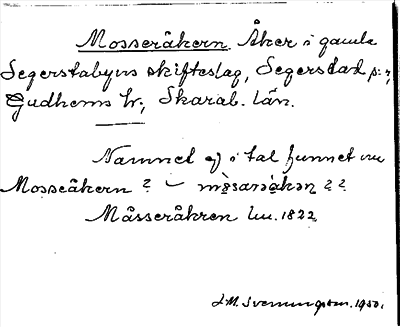 Mosseråkern. Åker i gamla
Segerstabyns skifteslag, Segerstad s:n,
Gudhems hr, Skarab. län.
Namnet ej i tal funnet nu
Mosseåkern ? –
Måsseråkren lm. 1822
J.M. Svenningson. 1930.